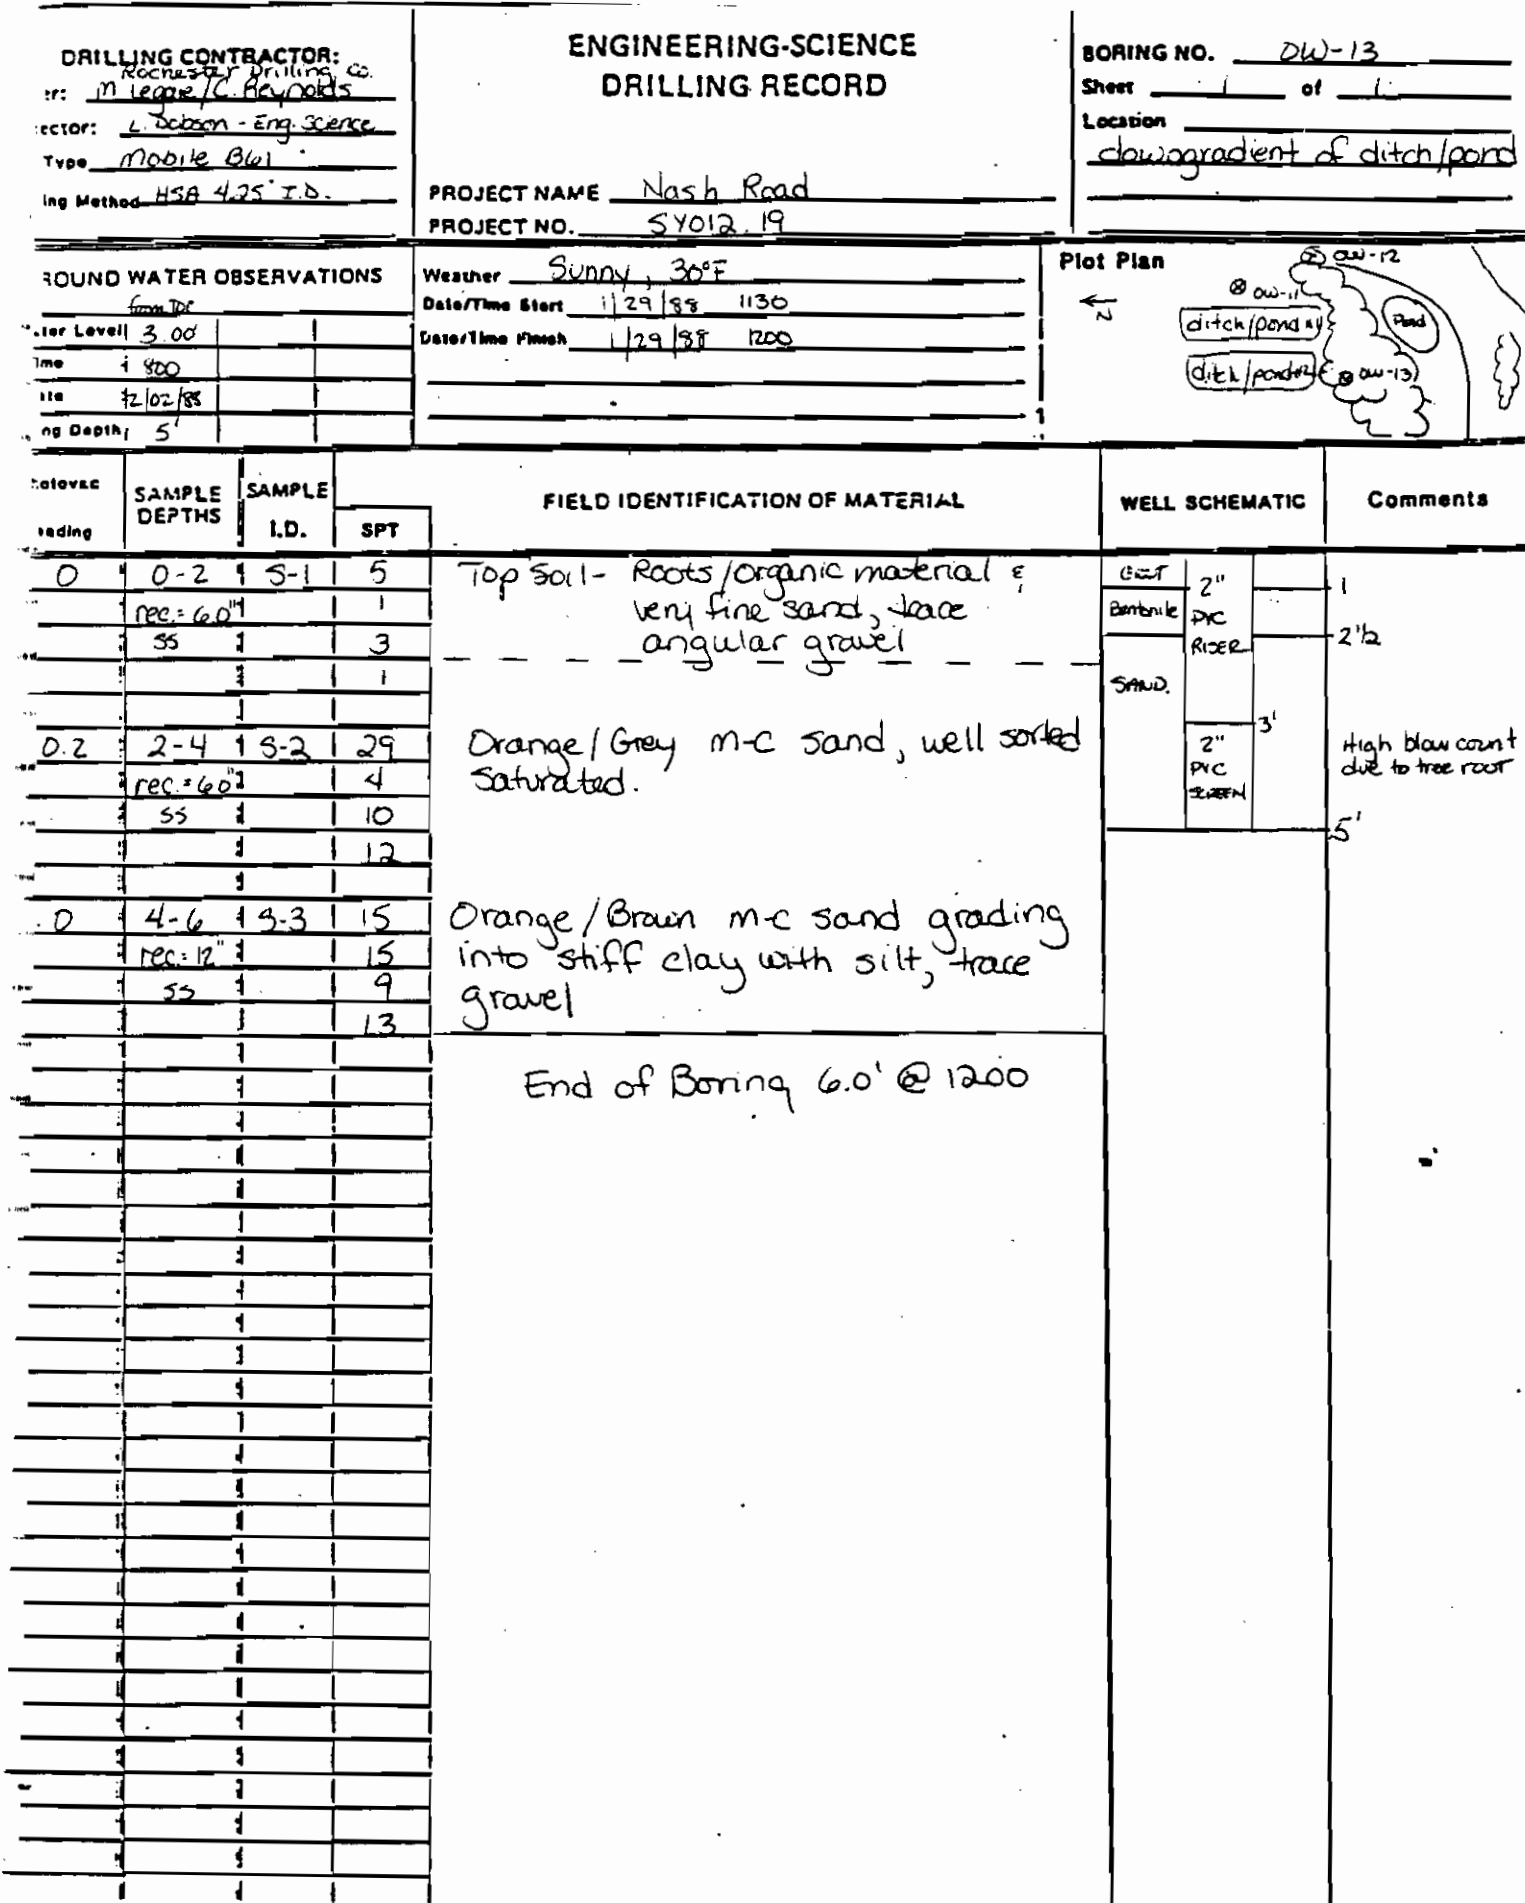 DRILLING CONTRACTOR:
Rochester Drilling Co.
er: M Legare/C. Reynolds
ector: L. Dobson - Eng. Science
Type Mobile B61
ing Method HSA 4.25" I.D.
ENGINEERING-SCIENCE
DRILLING RECORD
PROJECT NAME Nash Road
PROJECT NO. SY012.19
BORING NO. OW-13
Sheet 1 of 1
Location
downgradient of ditch/pond
ROUND WATER OBSERVATIONS
from TOC
ter Level 3.00
ime 800
2/02/88
ng Depth 5'
Weather Sunny, 30°F
Date/Time Start 1/29/88 1130
Date/Time Finish 1/29/88 1200
Plot Plan
N
OW-12
OW-11
ditch/pond #1
Pond
ditch/pond #2
OW-13
ading
SAMPLE DEPTHS
SAMPLE I.D.
SPT
FIELD IDENTIFICATION OF MATERIAL
WELL SCHEMATIC
Comments
0 0-2 S-1 5 Top Soil- Roots/organic material &
rec.= 6.0" 1 very fine sand, trace
ss 3 angular gravel
1
2" PVC RISER
1
Bentonite
2 1/2
SAND.
3'
0.2 2-4 S-2 29 Orange/Grey m-c sand, well sorted
rec.= 6.0" 4 Saturated.
ss 10
12
2" PVC SCREEN
High blow count
due to tree root
5'
0 4-6 S-3 15 Orange/Brown m-c sand grading
rec.= 12" 15 into stiff clay with silt, trace
ss 9 gravel
13
End of Boring 6.0' @ 1200